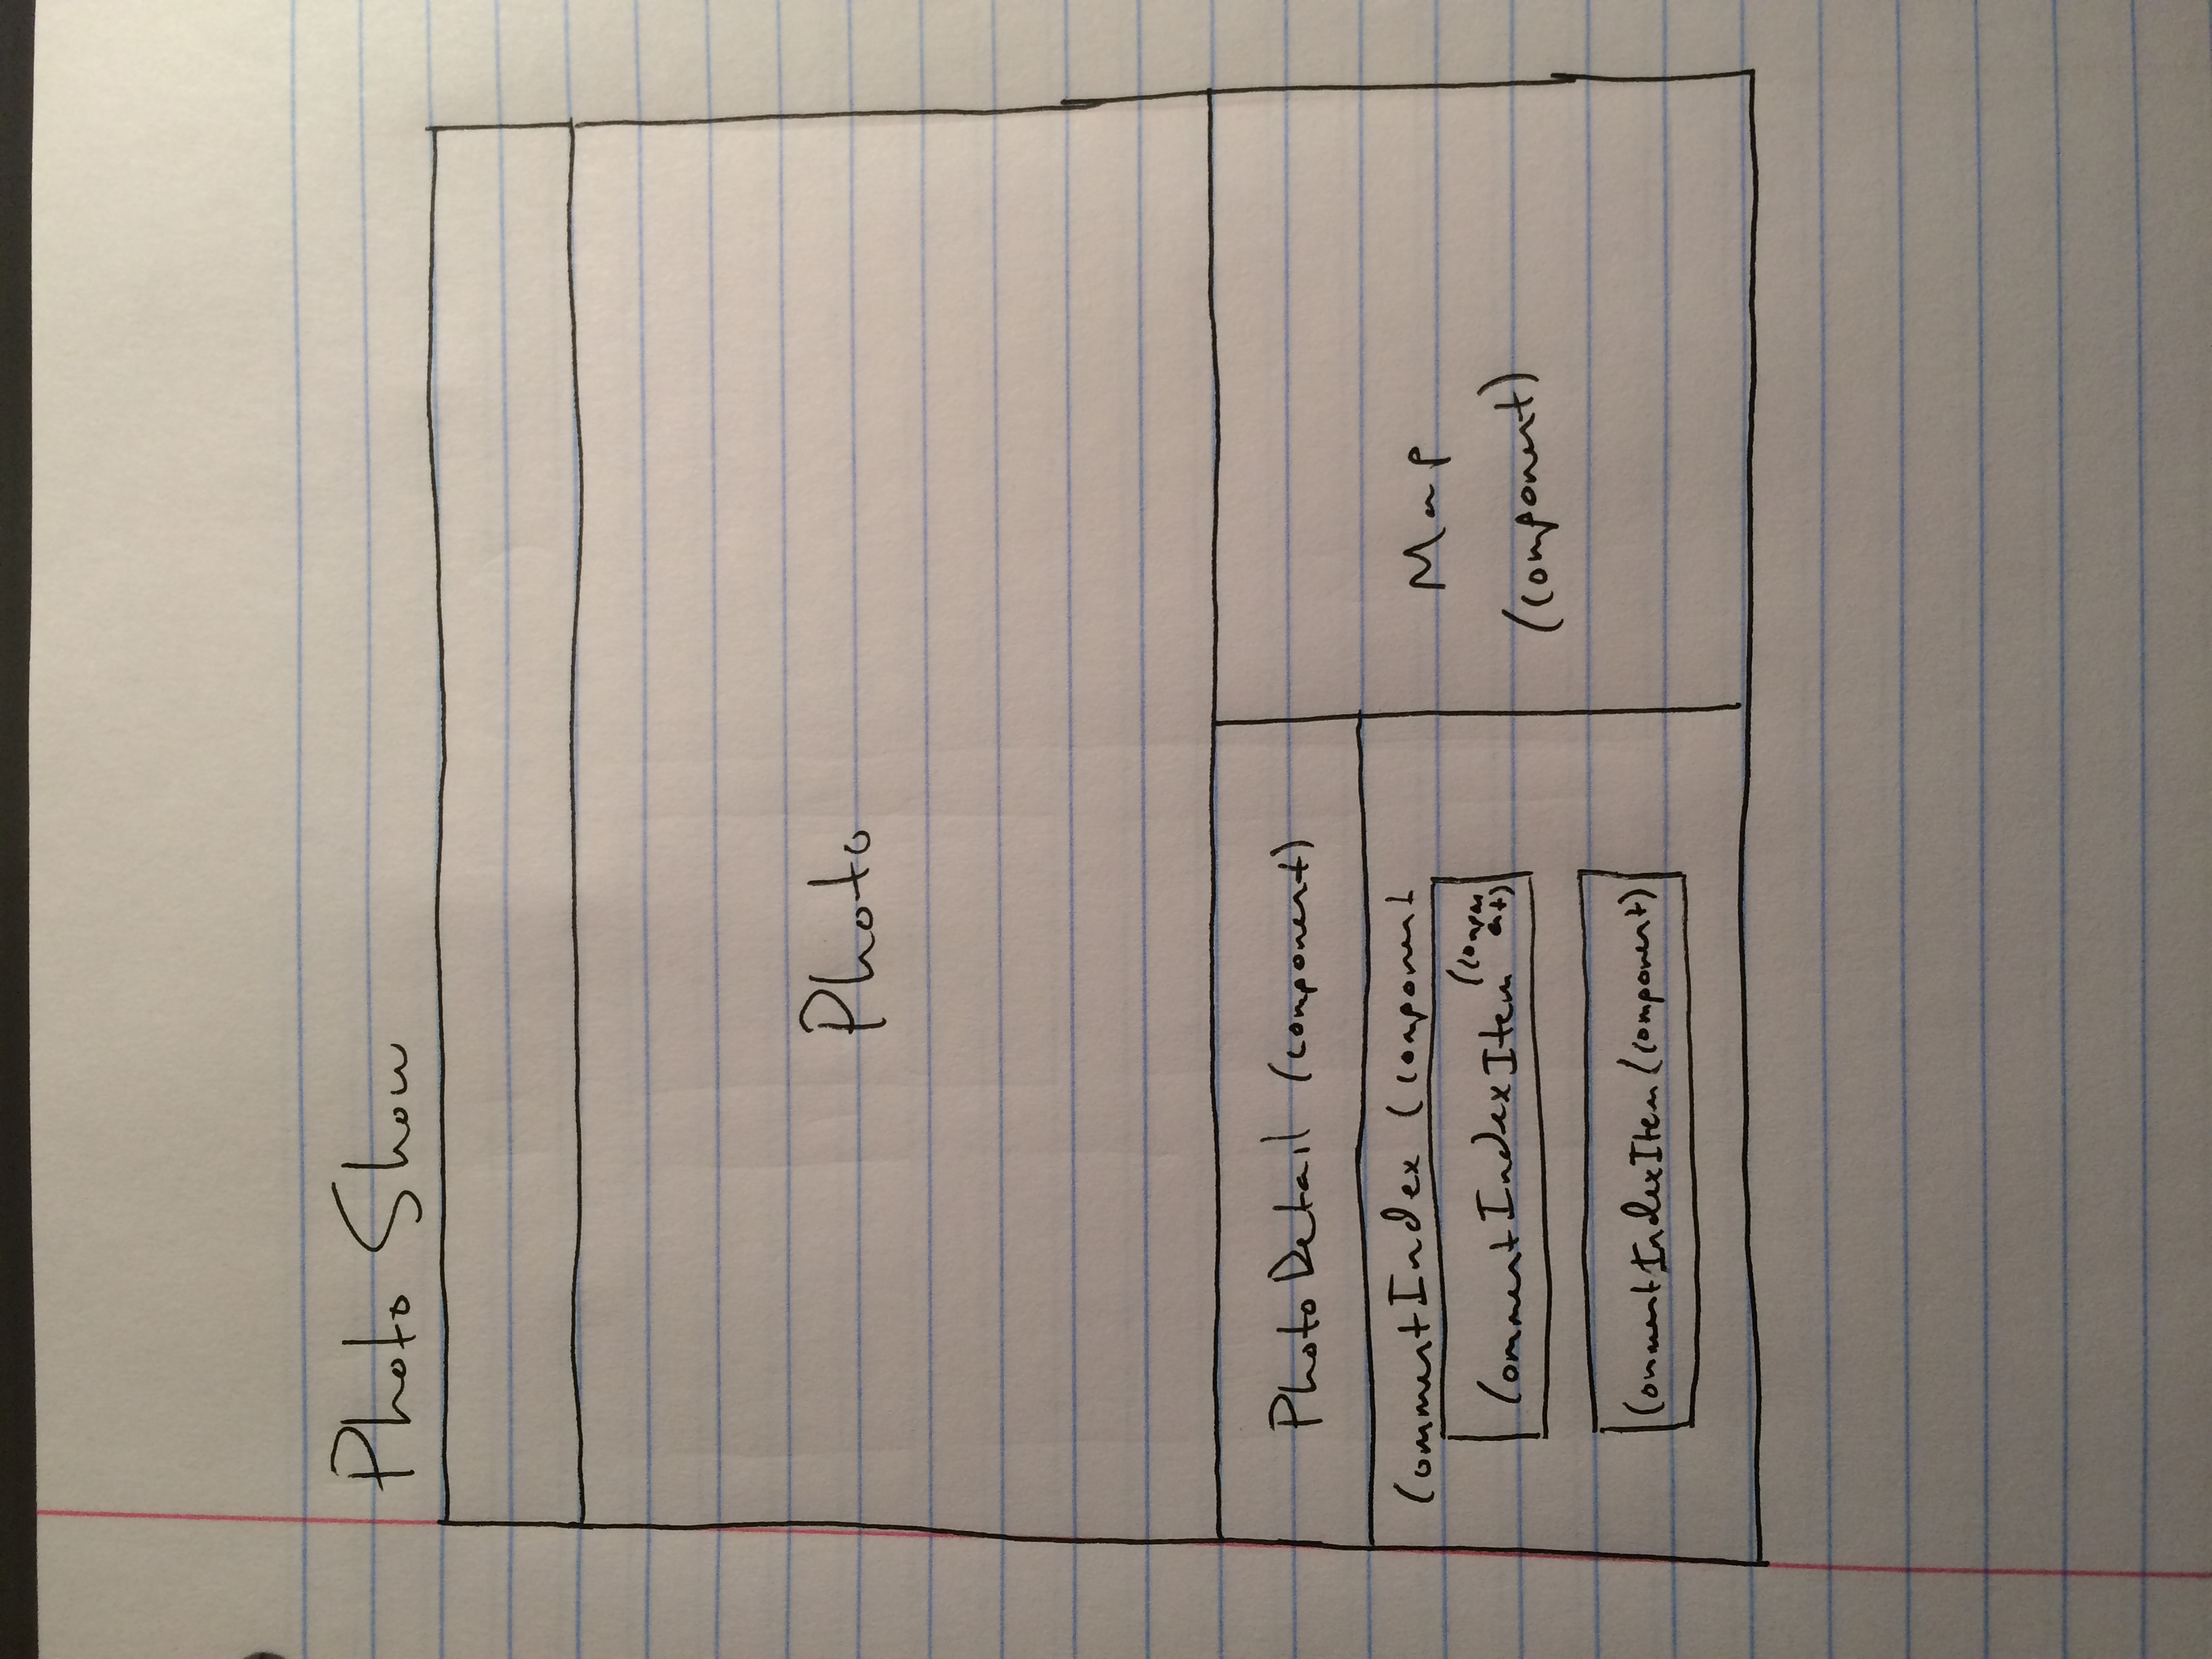 Photo Show
Photo
PhotoDetail (component)
CommentIndex (component
CommentIndexItem (compon
ent)
CommentIndexItem (component)
Map
(component)